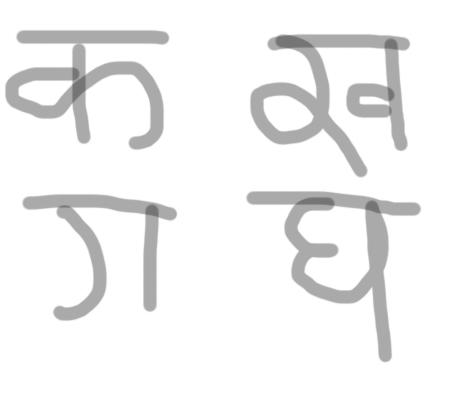 क ख
ग घ